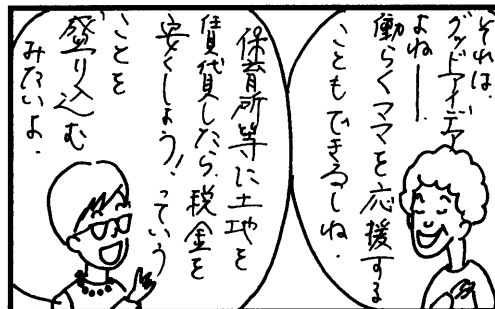 それは、
グッドアイデア
よねー。
働らくママを応援する
こともできるしね。
保育所等に土地を
賃貸したら、税金を
安くしよう！っていう
ことを
盛り込む
みたいよ。